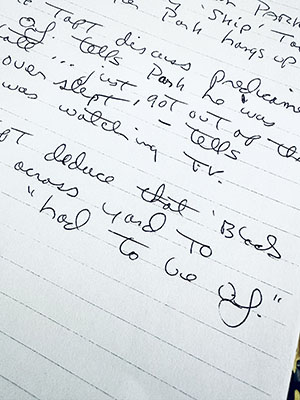 Park
'Ship',
Park hangs up
Tapt discuss
OJ tells Park he was
... just got out of
overslept, - tells
was watching TV.
deduce that 'Black
across yard to
"had to be OJ."